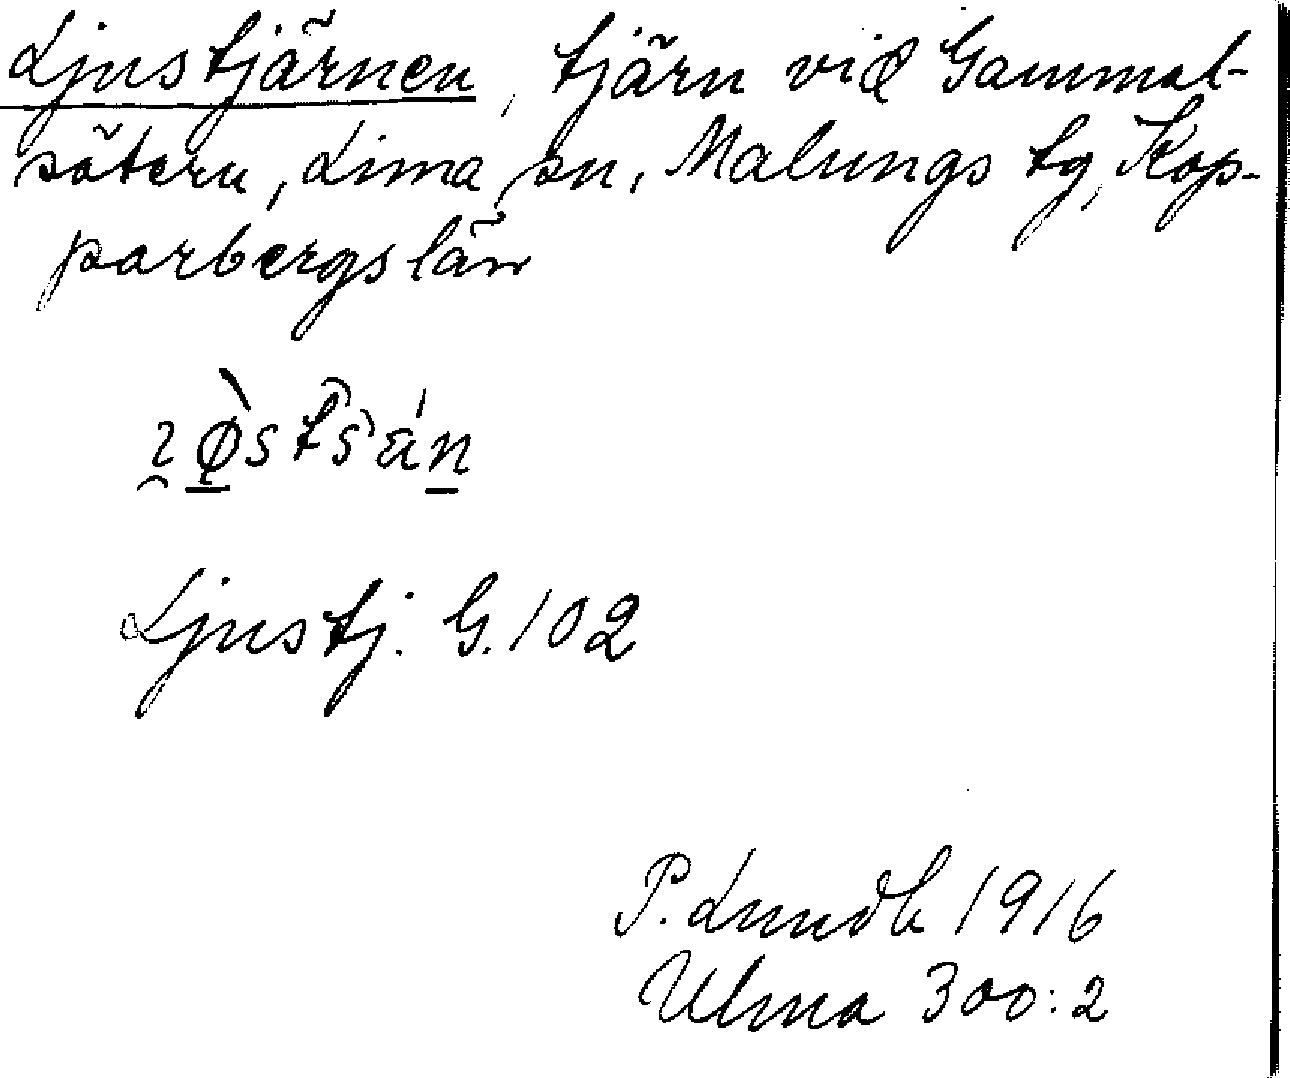 Ljustjärnen, tjärn vid Gammal-
sätern, Lima sn, Malungs tg, Kop-
parbergs län
Ljustj. G. 102
P. Lundb 1916
Ulma 300:2